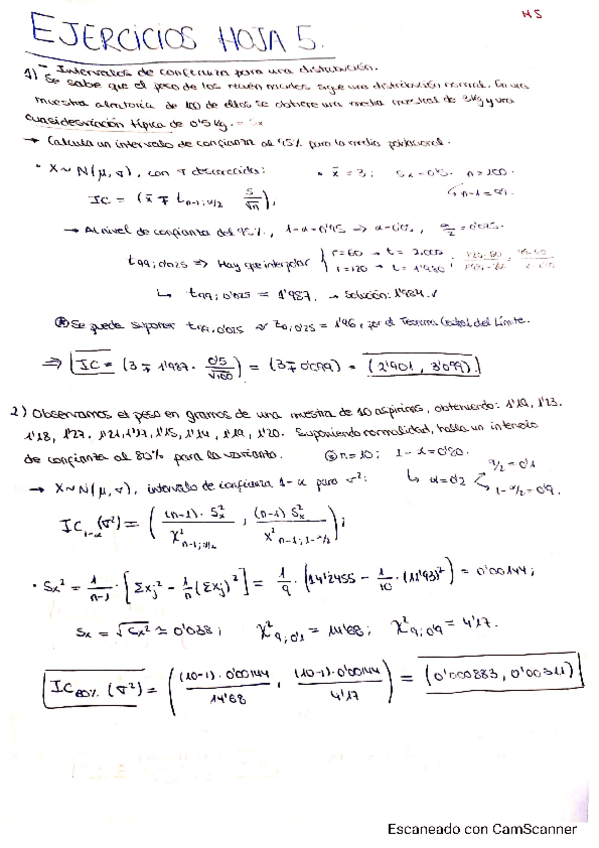 H5
EJERCICIOS HOJA 5.
- Intervalos de confianza para una distribución.
1) Se sabe que el peso de los recién nacidos sigue una distribución normal. En una
muestra aleatoria de 100 de ellos se obtiene una media muestral de 3kg y una
cuasidesviación típica de 0'5 kg. = Sx
→ Calcula un intervalo de confianza al 95% para la media poblacional.
• X ~ N(μ, σ), con σ desconocida: • x̄ = 3; Sx = 0'5. n = 100.
↳ n-1 = 99.
IC = (x̄ ∓ t n-1; α/2 S/√n),
→ Al nivel de confianza del 95%, 1-α = 0'95 → α = 0'05, α/2 = 0'025.
t99; 0'025 ⇒ Hay que interpolar { r=60 → t = 2.000
r=120 → t = 1'980
↳ t99; 0'025 = 1'987. → Solución: 1'984. ✓
Se puede suponer t99, 0'025 ≈ Z0,025 = 1'96, por el Teorema Central del Límite.
⇒ IC = (3 ∓ 1'987 · 0'5/√100) = (3 ∓ 0'099) = (2'901, 3'099).
2) Observamos el peso en gramos de una muestra de 10 aspirinas, obteniendo: 1'19, 1'23.
1'18, 1'27. 1'21, 1'17, 1'15, 1'14, 1'19, 1'20. Suponiendo normalidad, halla un intervalo
de confianza al 80% para la varianza. n = 10; 1-α = 0'80. α/2 = 0'1
↳ α = 0'2 1-α/2 = 0'9.
→ X ~ N(μ, σ), intervalo de confianza 1-α para σ²:
IC1-α (σ²) = ( (n-1)·Sx² / χ² n-1; α/2 , (n-1) Sx² / χ² n-1; 1-α/2 );
• Sx² = 1/n-1 · [Σxj² - 1/n (Σxj)²] = 1/9 · (14'2455 - 1/10 · (11'93)²) = 0'00144;
Sx = √Sx² ≃ 0'038; χ²9; 0'1 = 14'68; χ²9; 0'9 = 4'17.
IC80% (σ²) = ( (10-1)·0'00144 / 14'68 , (10-1)·0'00144 / 4'17 ) = (0'000883, 0'00311)
Escaneado con CamScanner